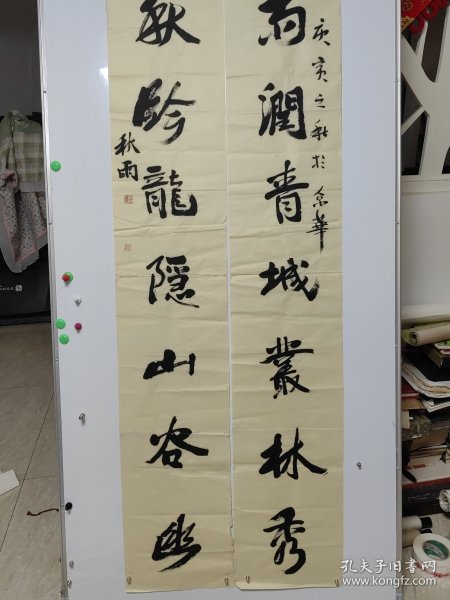 雨潤青城叢林秀
庚寅之秋於京華
秋吟龍隱山谷幽
秋雨
孔夫子旧书网
www.kongfz.com